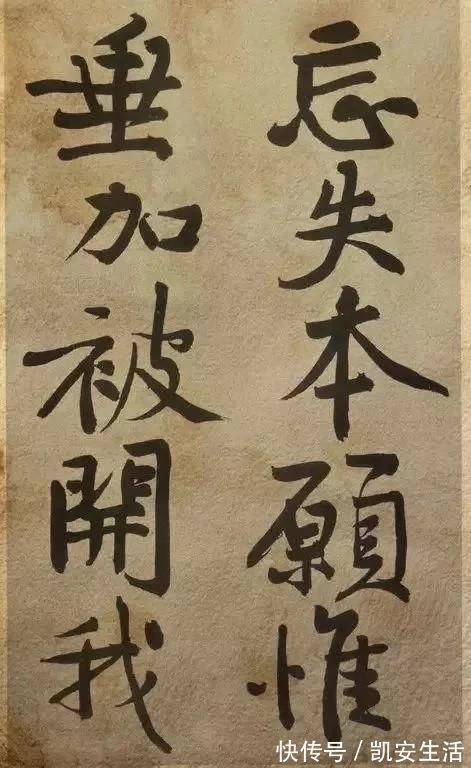 忘失本願惟
垂加被開我
快传号/凯安生活